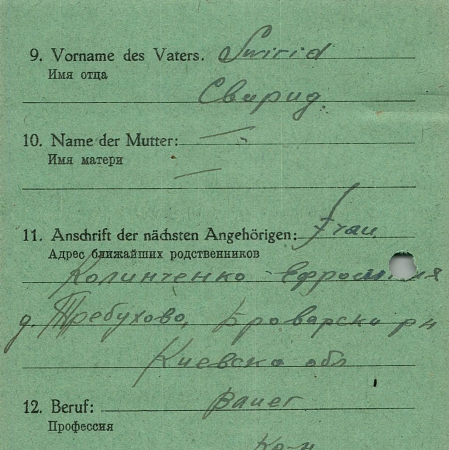 9. Vorname des Vaters. Swirid
Имя отца
Свирид.
10. Name der Mutter: —
Имя матери
—
11. Anschrift der nächsten Angehörigen: Frau
Адрес ближайших родственников
Колинченко Ефросиния
д. Требухово, Броварски рн
Киевска обл
12. Beruf: Bauer
Профессия